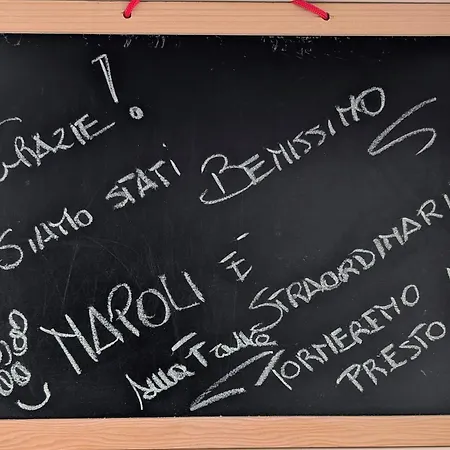 GRAZIE!
SIAMO STATI BENISSIMO
NAPOLI È STRAORDINARI
TORNEREMO
PRESTO